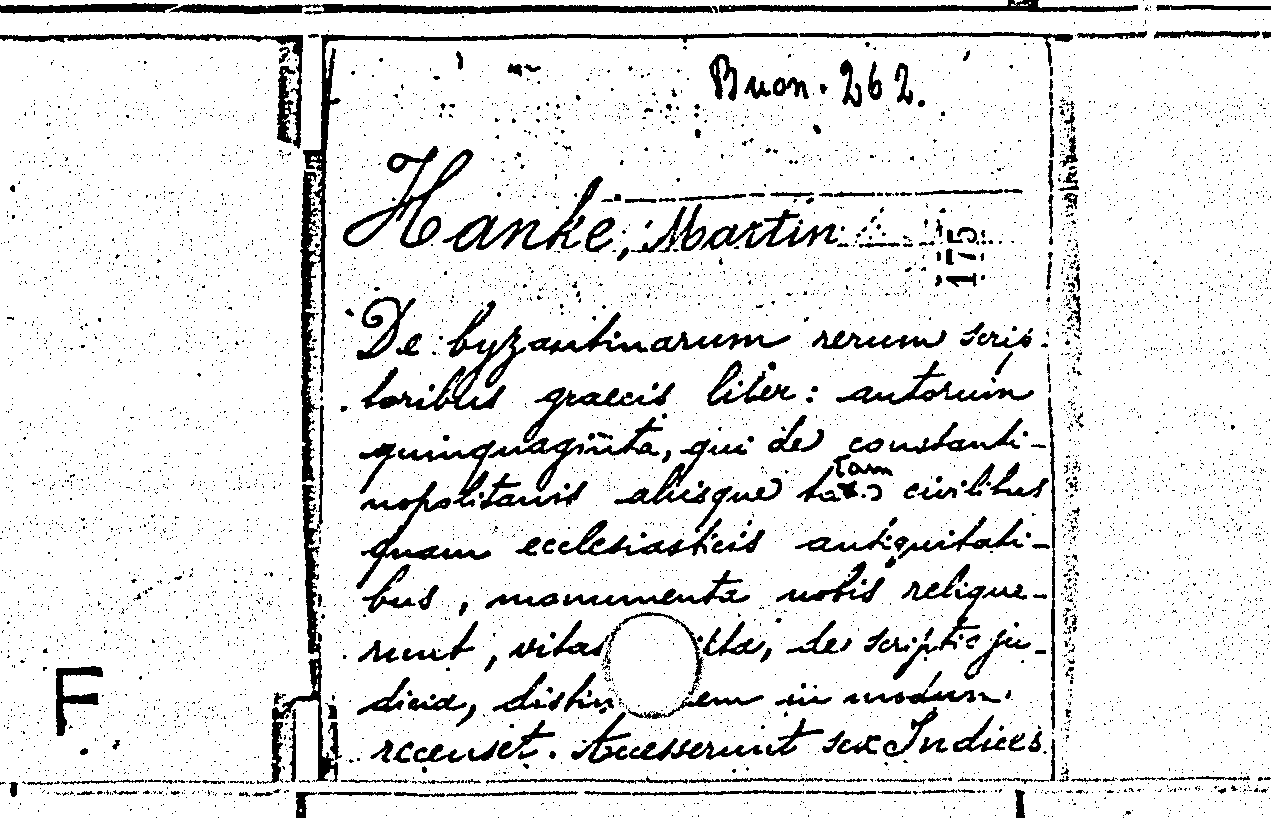 Buon. 262.
Hanke, Martin
175
De byzantinarum rerum scrip-
toribus graecis liber: autorum
quinquaginta, qui de constanti-
nopolitanis aliisque tam civilibus
quam ecclesiasticis antiquitati-
bus, monumenta nobis relique-
runt, vitas, de scriptis ju-
dicia, in modum
recenset. Accesserunt sex Indices
F